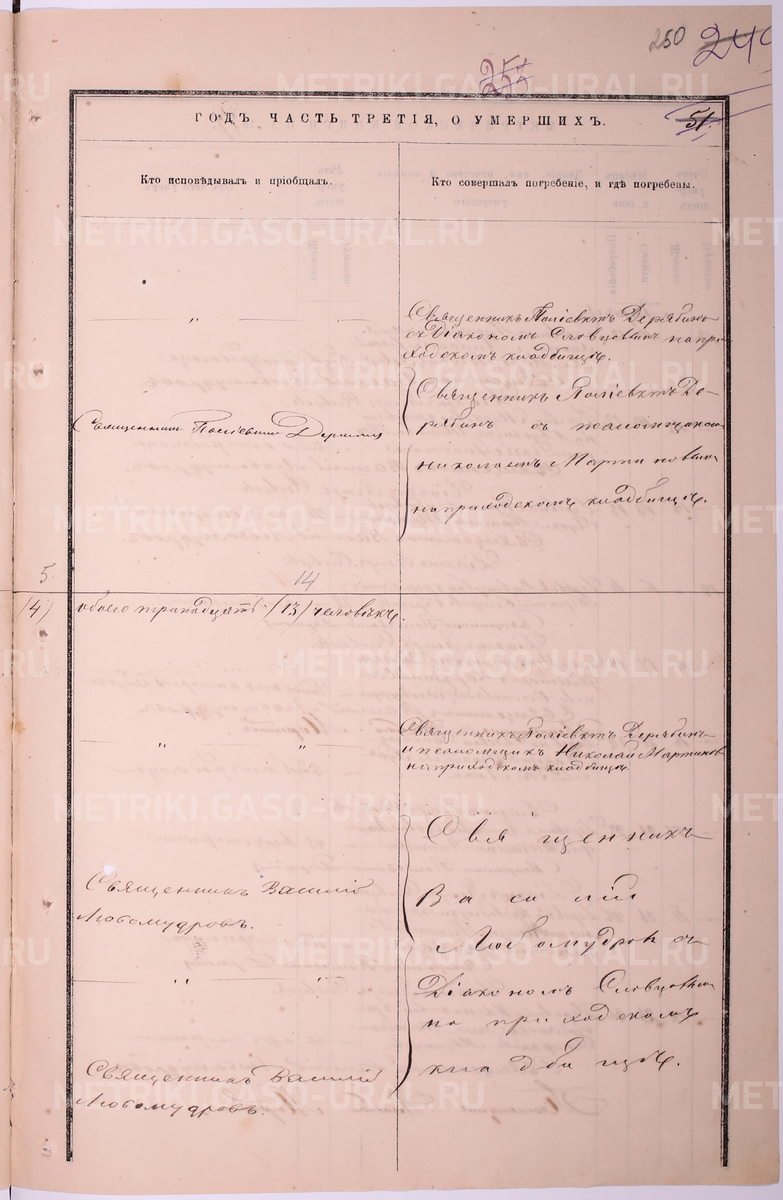 250 249
253
51.
ГОДЪ ЧАСТЬ ТРЕТІЯ, О УМЕРШИХЪ.
Кто исповѣдывалъ и пріобщалъ.
Кто совершалъ погребеніе, и гдѣ погребены.
"
Священникъ Поліевктъ Дерябинъ
съ Діакономъ Словцовымъ на при
ходскомъ кладбищѣ.
Священникъ Поліевктъ Дерябинъ
Священникъ Поліевктъ Де-
рябинъ съ псаломщикомъ
Николаемъ Мартиновымъ
на приходскомъ кладбищѣ.
5. 14
(4) обоего тринадцать (13) человѣкъ.
" "
Священникъ Поліевктъ Дерябинъ
и псаломщикъ Николай Мартиновъ
на приходскомъ кладбищѣ
Священникъ Василій
Любомудровъ.
" "
Священникъ Василій
Любомудровъ.
Священникъ
Василій
Любомудровъ съ
Діакономъ Словцовымъ
на приходскомъ
кладбищѣ.
METRIKI.GASO-URAL.RU